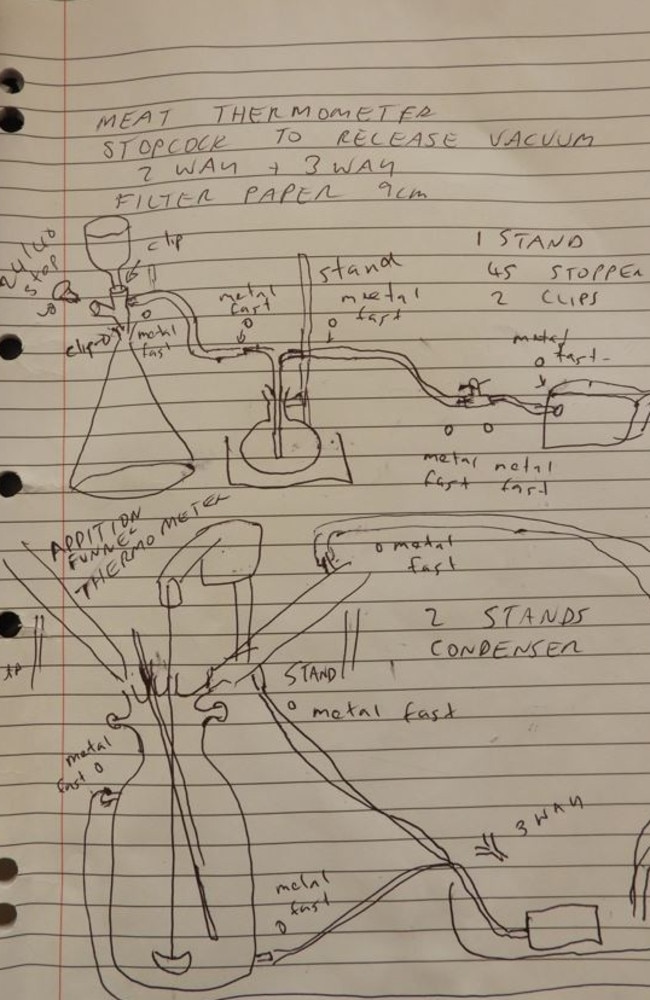 MEAT THERMOMETER
STOPCOCK TO RELEASE VACUUM
2 WAY + 3 WAY
FILTER PAPER 9cm
clip
stop
1 STAND
45 STOPPER
2 CLIPS
stand
metal fast
metal fast
metal fast
clip
metal fast
metal fast
metal fast
ADDITION
FUNNEL
THERMOMETER
metal fast
2 STANDS
CONDENSER
STAND
metal fast
metal fast
3 WAY
metal fast